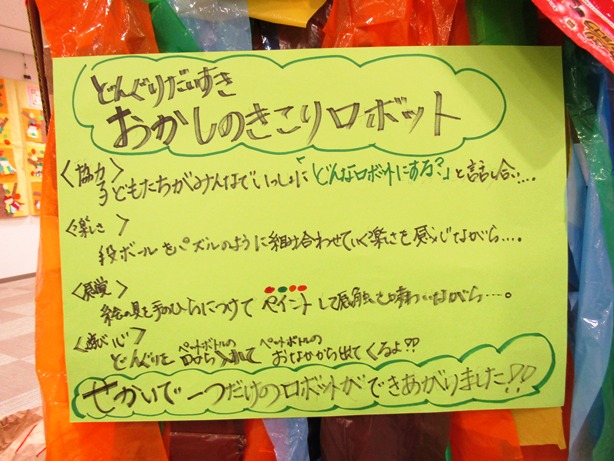 どんぐりだいすき
おかしのきこりロボット
〈協力〉
子どもたちがみんなでいっしょに「どんなロボットにする?」と話し合い….
〈楽しさ〉
段ボールをパズルのように組み合わせていく楽しさを感じながら….
〈感覚〉
絵の具を手のひらにつけてペイントして感触を味わいながら…。
〈遊び心〉
どんぐりをペットボトルの口から入れてペットボトルのおなかから出てくるよ!!
せかいで一つだけのロボットができあがりました!!